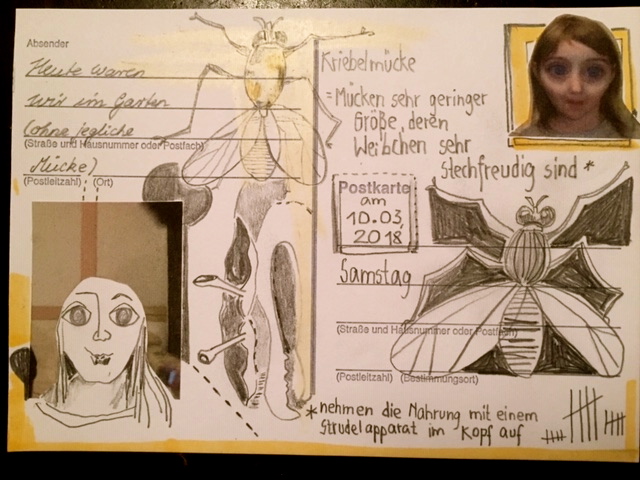 Absender
Heute waren
wir im Garten
(ohne jegliche
(Straße und Hausnummer oder Postfach)
Mücke)
(Postleitzahl) (Ort)
Kriebelmücke
= Mücken sehr geringer
Größe, deren
Weibchen sehr
stechfreudig sind *
Postkarte
am
10.03.
2018
Samstag
(Straße und Hausnummer oder Postfach)
(Postleitzahl) (Bestimmungsort)
* nehmen die Nahrung mit einem
Strudelapparat im Kopf auf